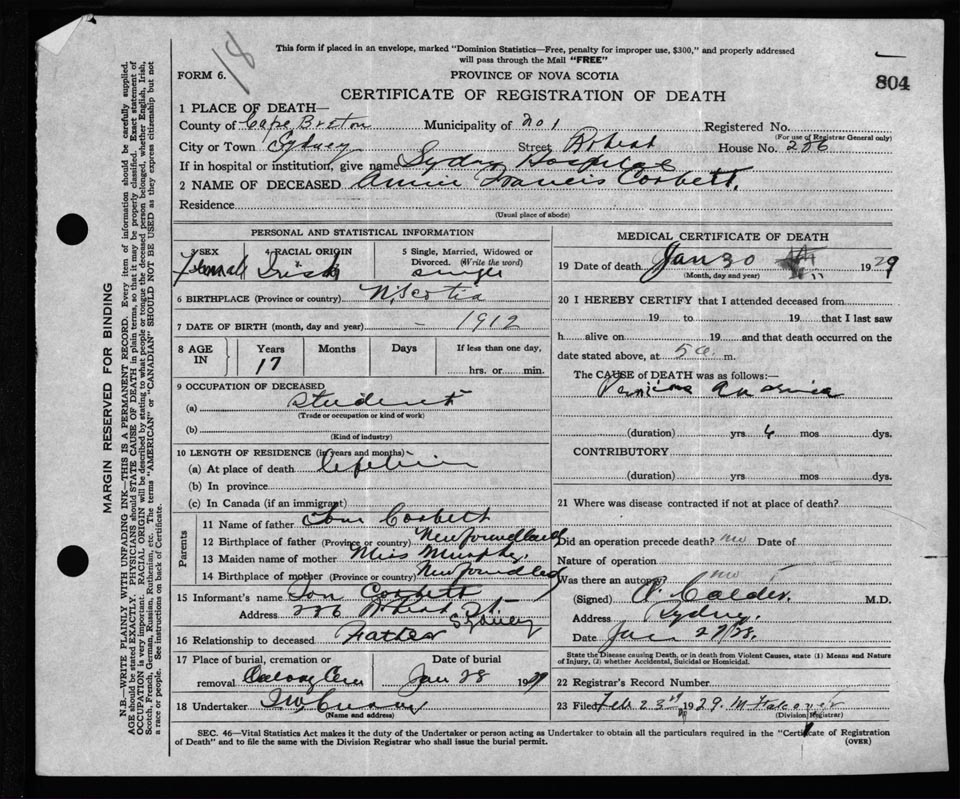 18
This form if placed in an envelope, marked "Dominion Statistics—Free, penalty for improper use, $300," and properly addressed
will pass through the Mail "FREE"
FORM 6.
PROVINCE OF NOVA SCOTIA
804
CERTIFICATE OF REGISTRATION OF DEATH
1 PLACE OF DEATH—
County of Cape Breton Municipality of No 1 Registered No.
(For use of Registrar General only)
City or Town Sydney Street House No. 226
If in hospital or institution, give name Sydney Hospital
2 NAME OF DECEASED Annie Francis Corbett.
Residence
(Usual place of abode)
PERSONAL AND STATISTICAL INFORMATION
3 SEX 4 RACIAL ORIGIN 5 Single, Married, Widowed or Divorced. (Write the word)
Female Irish single
6 BIRTHPLACE (Province or country) N. Scotia
7 DATE OF BIRTH (month, day and year) – 1912
8 AGE IN Years Months Days If less than one day,
17 hrs. or min.
9 OCCUPATION OF DECEASED
(a) student
(Trade or occupation or kind of work)
(b)
(Kind of industry)
10 LENGTH OF RESIDENCE (in years and months)
(a) At place of death lifetime
(b) In province
(c) In Canada (if an immigrant)
Parents
11 Name of father Tom Corbett
12 Birthplace of father (Province or country) Newfoundland
13 Maiden name of mother Miss Murphy.
14 Birthplace of mother (Province or country) Newfoundland
15 Informant's name Tom Corbett
Address 226 St. Sydney
16 Relationship to deceased Father
17 Place of burial, cremation or Date of burial
removal Jan 28 1929
18 Undertaker
(Name and address)
MEDICAL CERTIFICATE OF DEATH
19 Date of death Jan 30 1929
(Month, day and year)
20 I HEREBY CERTIFY that I attended deceased from
19 to 19 that I last saw
h alive on 19 and that death occurred on the
date stated above, at 5 a. m.
The CAUSE of DEATH was as follows:—
Pernicious Anaemia
(duration) yrs 6 mos dys.
CONTRIBUTORY
(duration) yrs mos dys.
21 Where was disease contracted if not at place of death?
Did an operation precede death? no Date of
Nature of operation
Was there an autopsy? no
(Signed) Calder. M.D.
Address Sydney.
Date Jan 27/28.
State the Disease causing Death, or in death from Violent Causes, state (1) Means and Nature
of Injury, (2) whether Accidental, Suicidal or Homicidal.
22 Registrar's Record Number
23 Filed Feb 23rd 1929.
(Division Registrar)
SEC. 46—Vital Statistics Act makes it the duty of the Undertaker or person acting as Undertaker to obtain all the particulars required in the "Certificate of Registration
of Death" and to file the same with the Division Registrar who shall issue the burial permit.
(OVER)
MARGIN RESERVED FOR BINDING
N.B.—WRITE PLAINLY WITH UNFADING INK—THIS IS A PERMANENT RECORD. Every item of information should be carefully supplied.
AGE should be stated EXACTLY. PHYSICIANS should STATE CAUSE OF DEATH in plain terms, so that it may be properly classified. Exact statement of
OCCUPATION is very important. RACIAL ORIGIN will be described by stating to what people or tongue the deceased person belonged, whether English, Irish,
Scotch, French, German, Russian, Ruthenian, etc. The terms "AMERICAN" or "CANADIAN" SHOULD NOT BE USED as they express citizenship but not
a race or people. See instructions on back of Certificate.